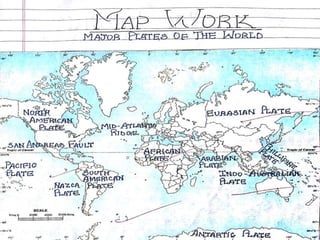 MAP WORK
MAJOR PLATES OF THE WORLD
NORTH
AMERICAN
PLATE
MID-ATLANTIC
RIDGE
EURASIAN PLATE
SAN ANDREAS FAULT
AFRICAN
PLATE
ARABIAN
PLATE
PHILIPPINE
PLATE
Tropic of Cancer
Tropic of Cancer
PACIFIC
PLATE
NAZCA
PLATE
SOUTH
AMERICAN
PLATE
INDO-AUSTRALIAN
PLATE
SCALE
ANTARCTIC PLATE